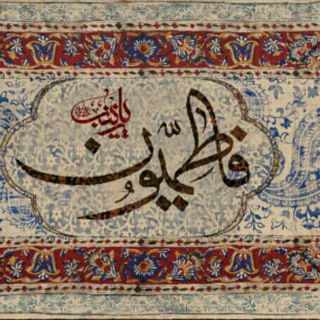 یا زینب
فاطمیّون